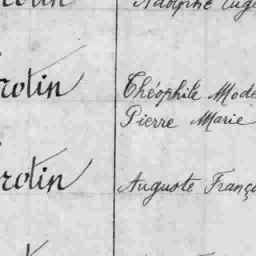 rotin Adolphe Eug
rotin Théophile Mode
Pierre Marie
rotin Auguste Franço